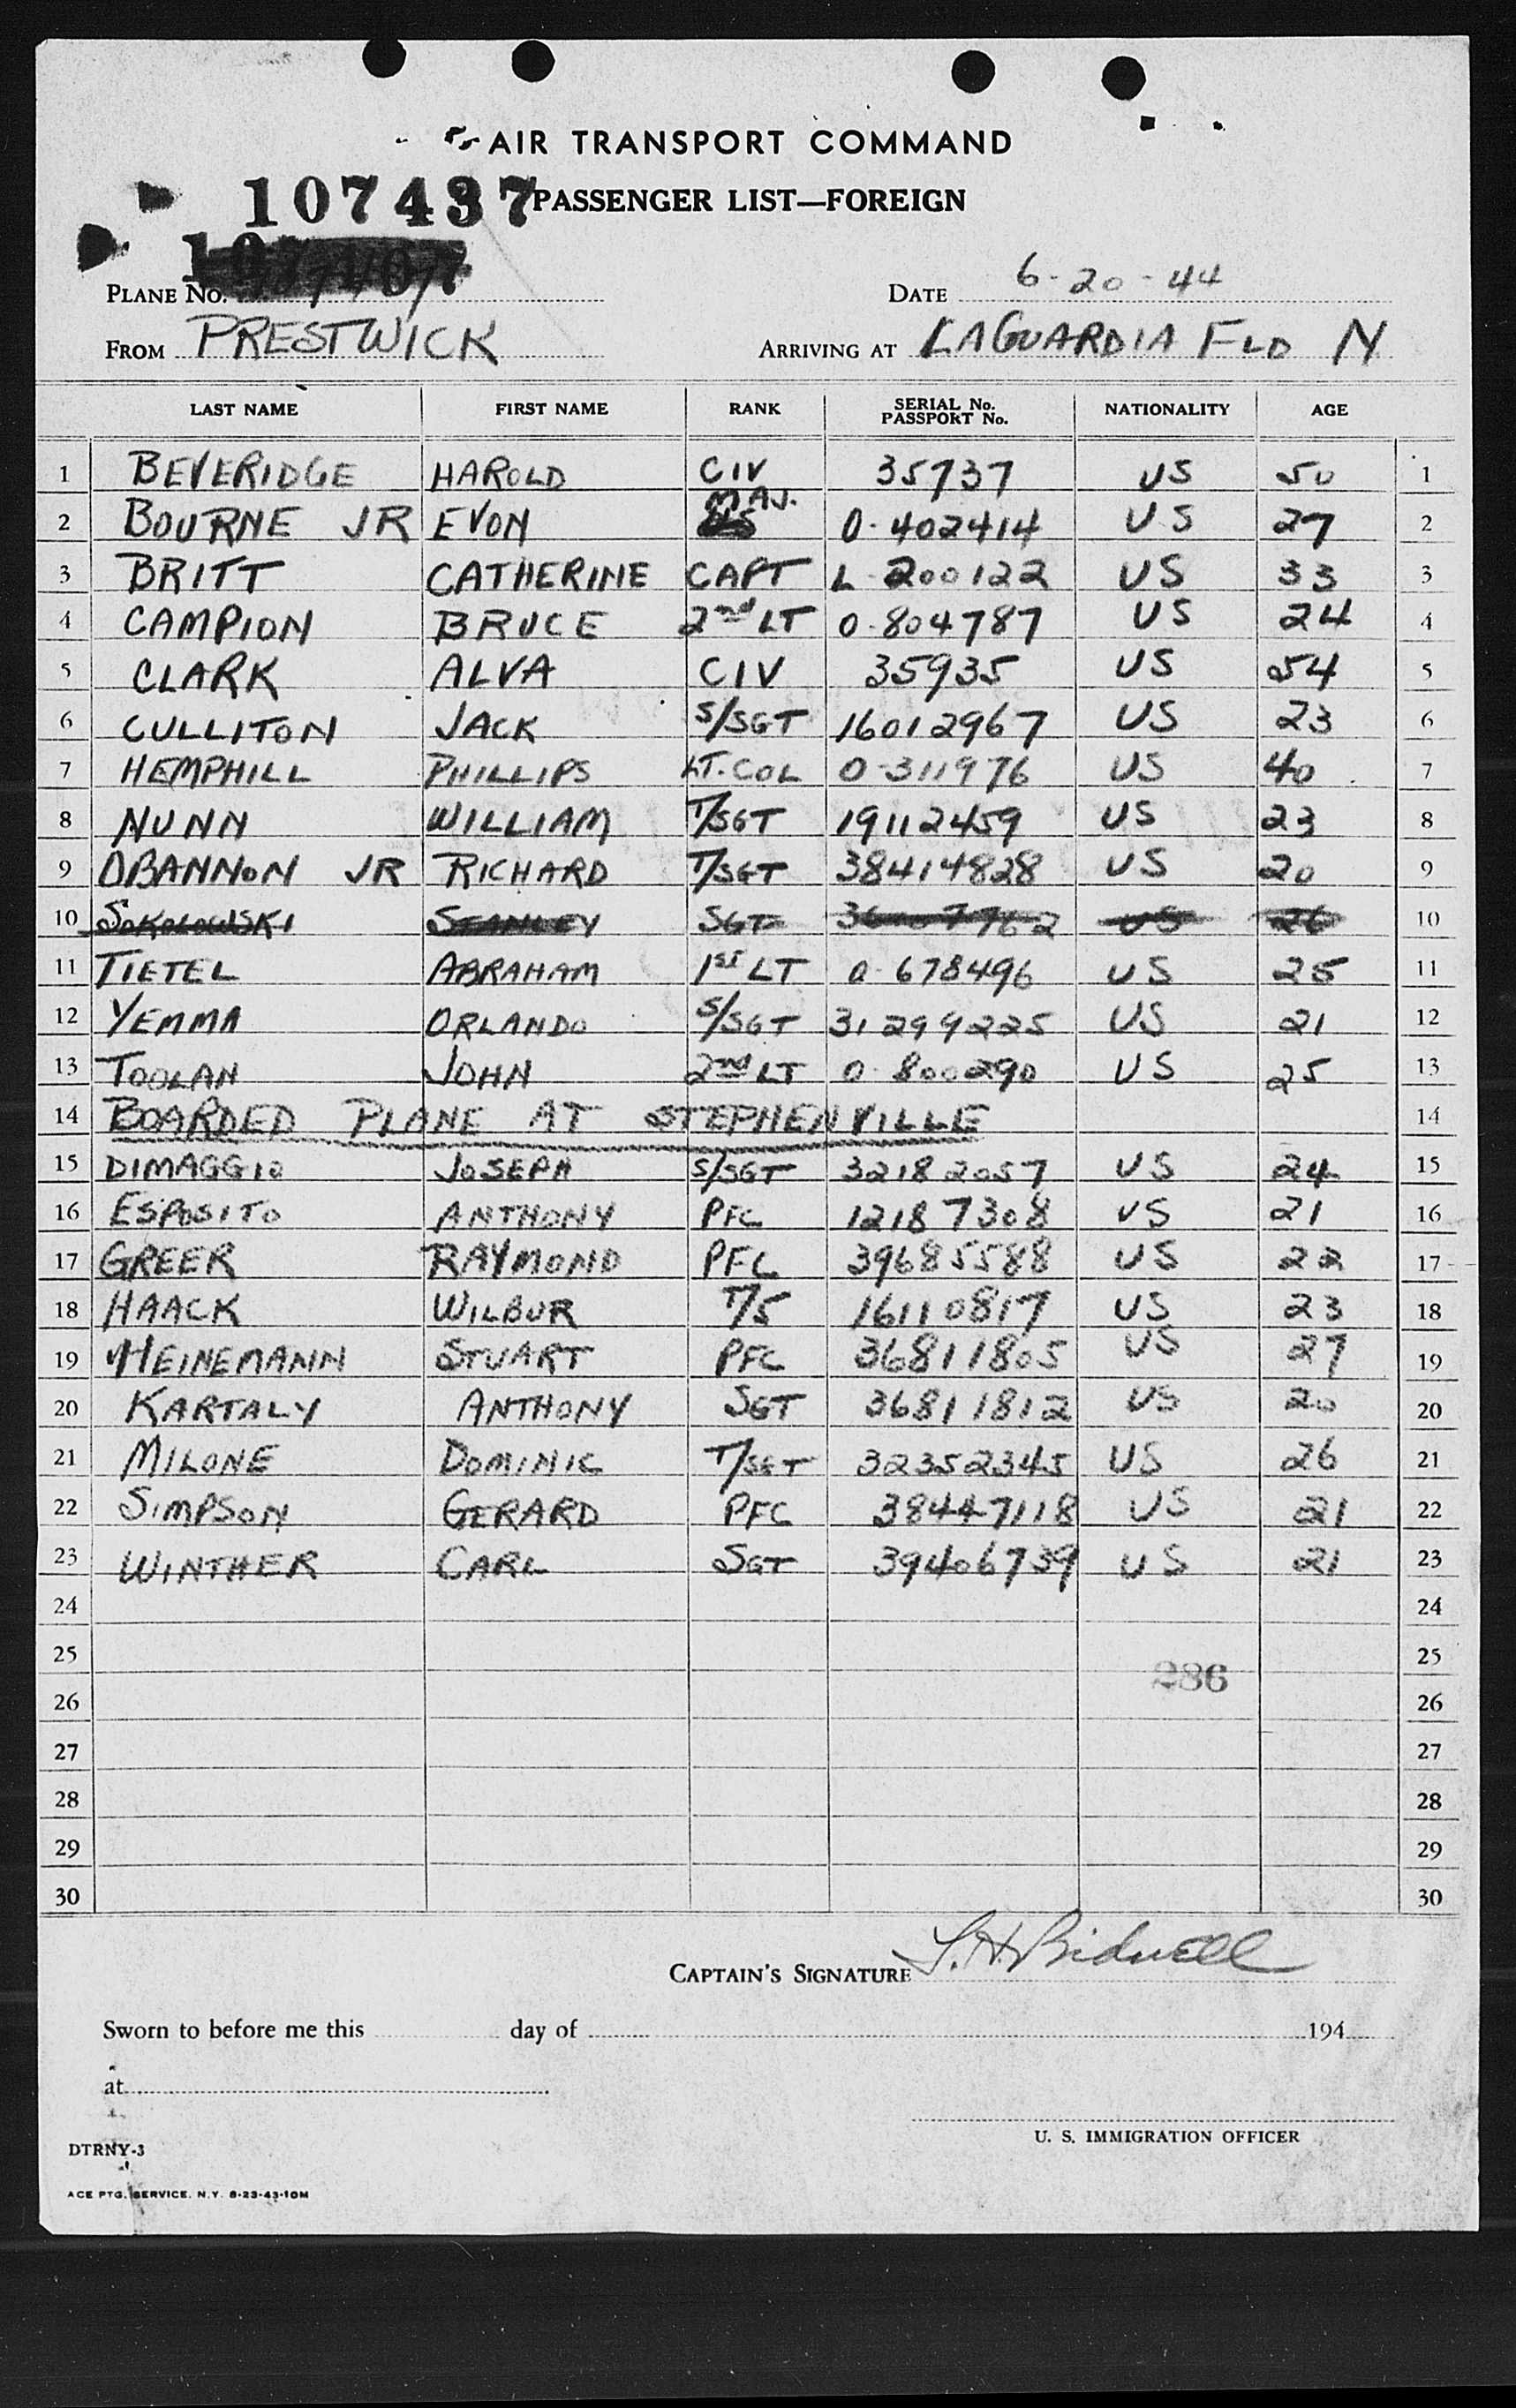 AIR TRANSPORT COMMAND
107437 PASSENGER LIST—FOREIGN
PLANE NO. DATE 6-20-44
FROM PRESTWICK ARRIVING AT LAGUARDIA FLD N
LAST NAME FIRST NAME RANK SERIAL No. PASSPORT No. NATIONALITY AGE
1 BEVERIDGE HAROLD CIV 35737 US 50 1
2 BOURNE JR EVON MAJ. O-402414 US 27 2
3 BRITT CATHERINE CAPT L-200122 US 33 3
4 CAMPION BRUCE 2nd LT O-804787 US 24 4
5 CLARK ALVA CIV 35935 US 54 5
6 CULLITON JACK S/SGT 16012967 US 23 6
7 HEMPHILL PHILLIPS LT. COL O-311976 US 40 7
8 NUNN WILLIAM T/SGT 19112459 US 23 8
9 OBANNON JR RICHARD T/SGT 38414828 US 20 9
10 SOKOLOWSKI STANLEY SGT US 26 10
11 TIETEL ABRAHAM 1ST LT O-678496 US 25 11
12 YEMMA ORLANDO S/SGT 31299225 US 21 12
13 TOOLAN JOHN 2nd LT O-800290 US 25 13
14 BOARDED PLANE AT STEPHENVILLE 14
15 DIMAGGIO JOSEPH S/SGT 32182057 US 24 15
16 ESPOSITO ANTHONY PFC 12187308 US 21 16
17 GREER RAYMOND PFC 39685588 US 22 17
18 HAACK WILBUR T/5 16110817 US 23 18
19 HEINEMANN STUART PFC 36811805 US 27 19
20 KARTALY ANTHONY SGT 36811812 US 20 20
21 MILONE DOMINIC T/SGT 32352345 US 26 21
22 SIMPSON GERARD PFC 38447118 US 21 22
23 WINTHER CARL SGT 39406739 US 21 23
24 24
25 25
286
26 26
27 27
28 28
29 29
30 30
CAPTAIN'S SIGNATURE S. H. Bidwell
Sworn to before me this day of 194
at
U. S. IMMIGRATION OFFICER
DTRNY-3
ACE PTG. SERVICE. N.Y. 8-23-43-10M